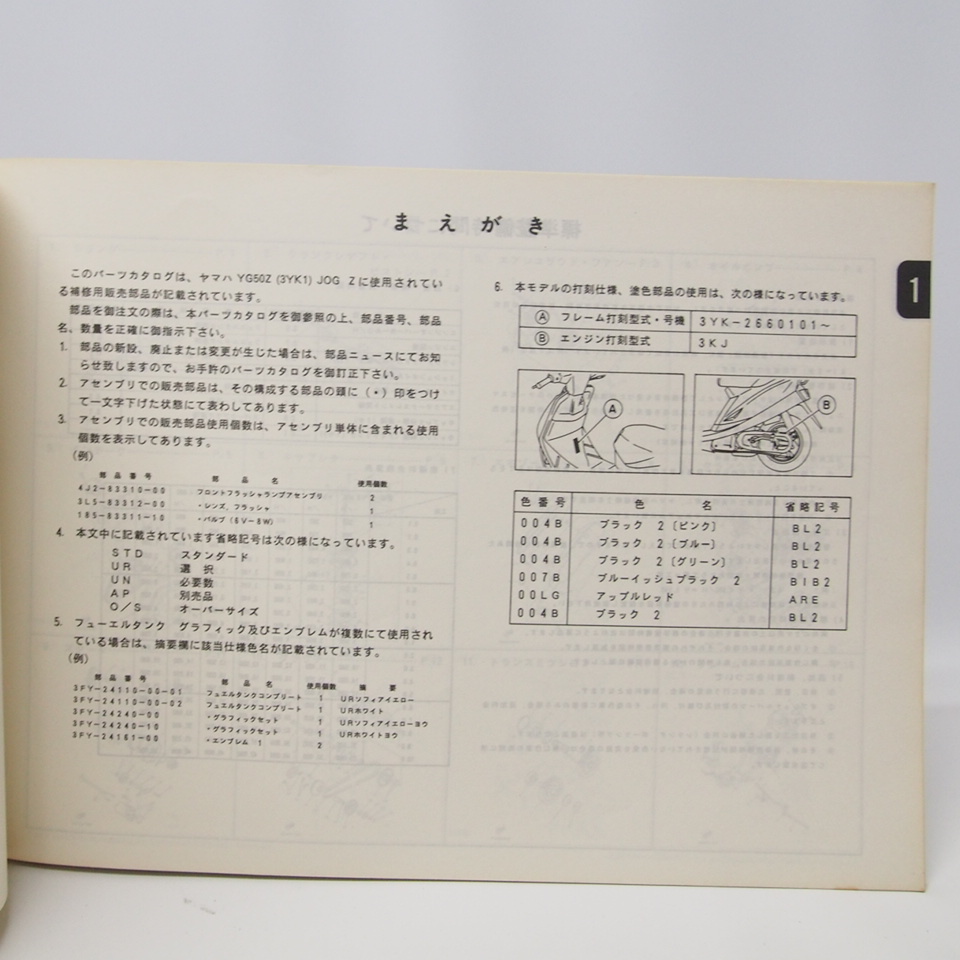 まえがき
このパーツカタログは、ヤマハ YG50Z (3YK1) JOG Zに使用されてい
る補修用販売部品が記載されています。
部品を御注文の際は、本パーツカタログを御参照の上、部品番号、部品
名、数量を正確に御指示下さい。
1. 部品の新設、廃止または変更が生じた場合は、部品ニュースにてお知
らせ致しますので、お手許のパーツカタログを御訂正下さい。
2. アセンブリでの販売部品は、その構成する部品の頭に(・)印をつけ
て一文字下げた状態にて表わしてあります。
3. アセンブリでの販売部品使用個数は、アセンブリ単体に含まれる使用
個数を表示してあります。
(例)
部品番号 部品名 使用個数
4J2-83310-00 フロントフラッシャランプアセンブリ 2
3L5-83312-00 ・レンズ, フラッシャ 1
185-83311-10 ・バルブ (6V-8W) 1
4. 本文中に記載されています省略記号は次の様になっています。
STD スタンダード
UR 選択
UN 必要数
AP 別売品
O/S オーバーサイズ
5. フューエルタンク グラフィック及びエンブレムが複数にて使用され
ている場合は、摘要欄に該当仕様色名が記載されています。
(例)
部品番号 部品名 使用個数 摘要
3FY-24110-00-01 フュエルタンクコンプリート 1 URソフィアイエロー
3FY-24110-00-02 フュエルタンクコンプリート 1 URホワイト
3FY-24240-00 ・グラフィックセット 1 URソフィアイエローヨウ
3FY-24240-10 ・グラフィックセット 1 URホワイトヨウ
3FY-24161-00 ・エンブレム 1 2
6. 本モデルの打刻仕様、塗色部品の使用は、次の様になっています。
Ⓐ フレーム打刻型式・号機 3YK-2660101~
Ⓑ エンジン打刻型式 3KJ
Ⓐ
Ⓑ
色番号 色名 省略記号
004B ブラック 2〔ピンク〕 BL2
004B ブラック 2〔ブルー〕 BL2
004B ブラック 2〔グリーン〕 BL2
007B ブルーイッシュブラック 2 BIB2
00LG アップルレッド ARE
004B ブラック 2 BL2
1